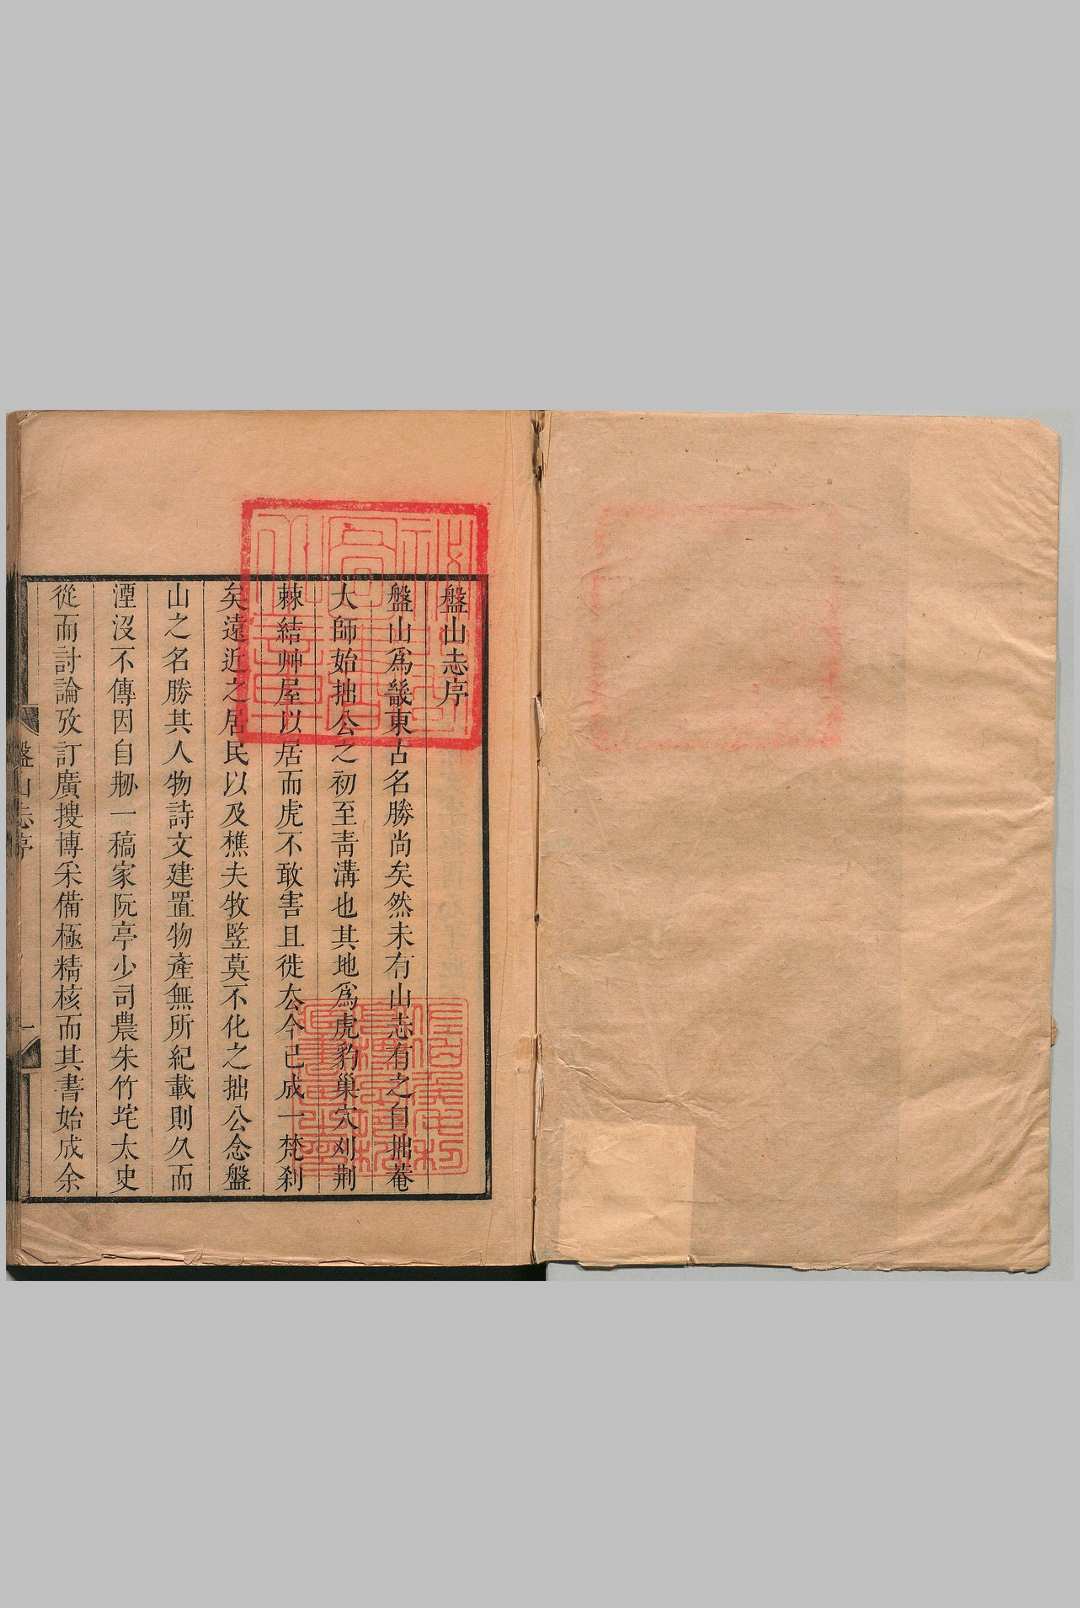 盤山志序
盤山爲畿東古名勝尚矣然未有山志有之自拙菴
大師始拙公之初至青溝也其地爲虎豹巢穴刈荆
棘結艸屋以居而虎不敢害且徙厺今已成一梵刹
矣遠近之居民以及樵夫牧竪莫不化之拙公念盤
山之名勝其人物詩文建置物產無所紀載則久而
湮沒不傳因自刱一稿家阮亭少司農朱竹垞太史
從而討論攷訂廣搜博采備極精核而其書始成余
盤山志序
一